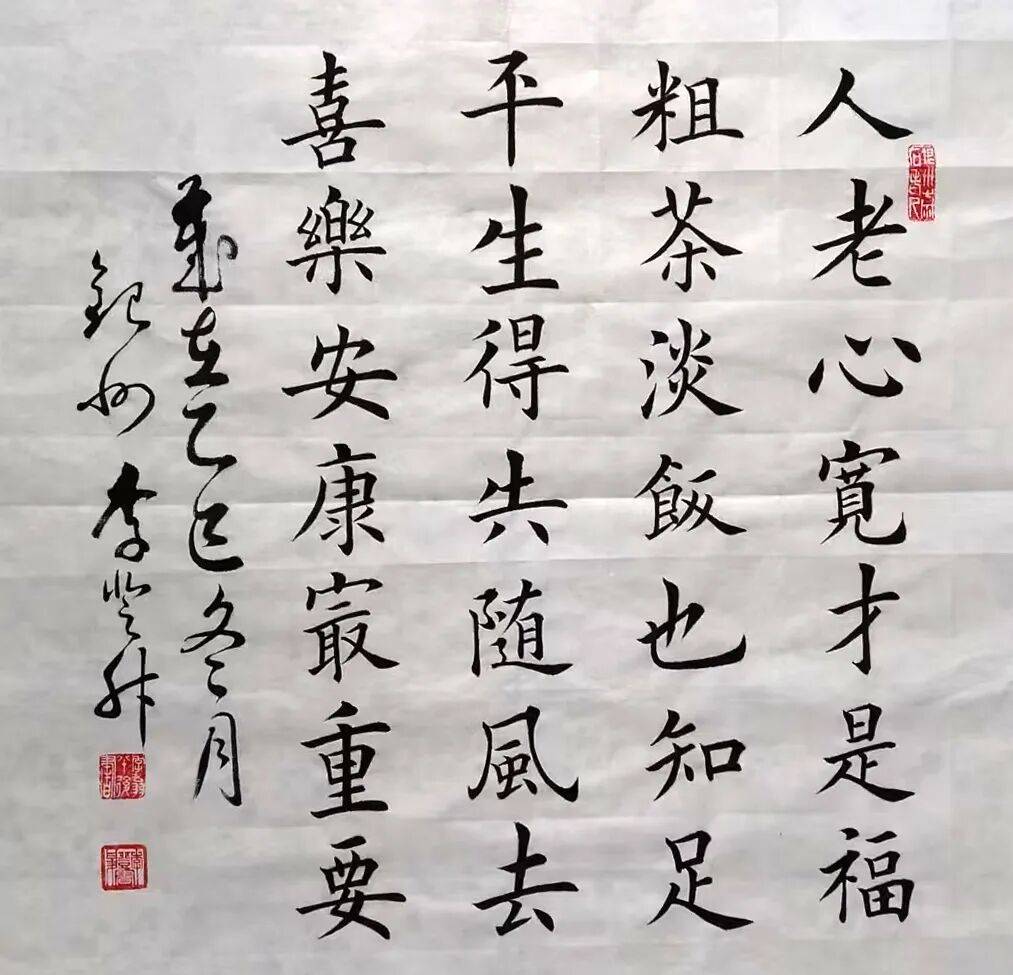 人老心寬才是福
粗茶淡飯也知足
平生得失随風去
喜樂安康㝡重要
歲在乙巳冬月
銀州李登